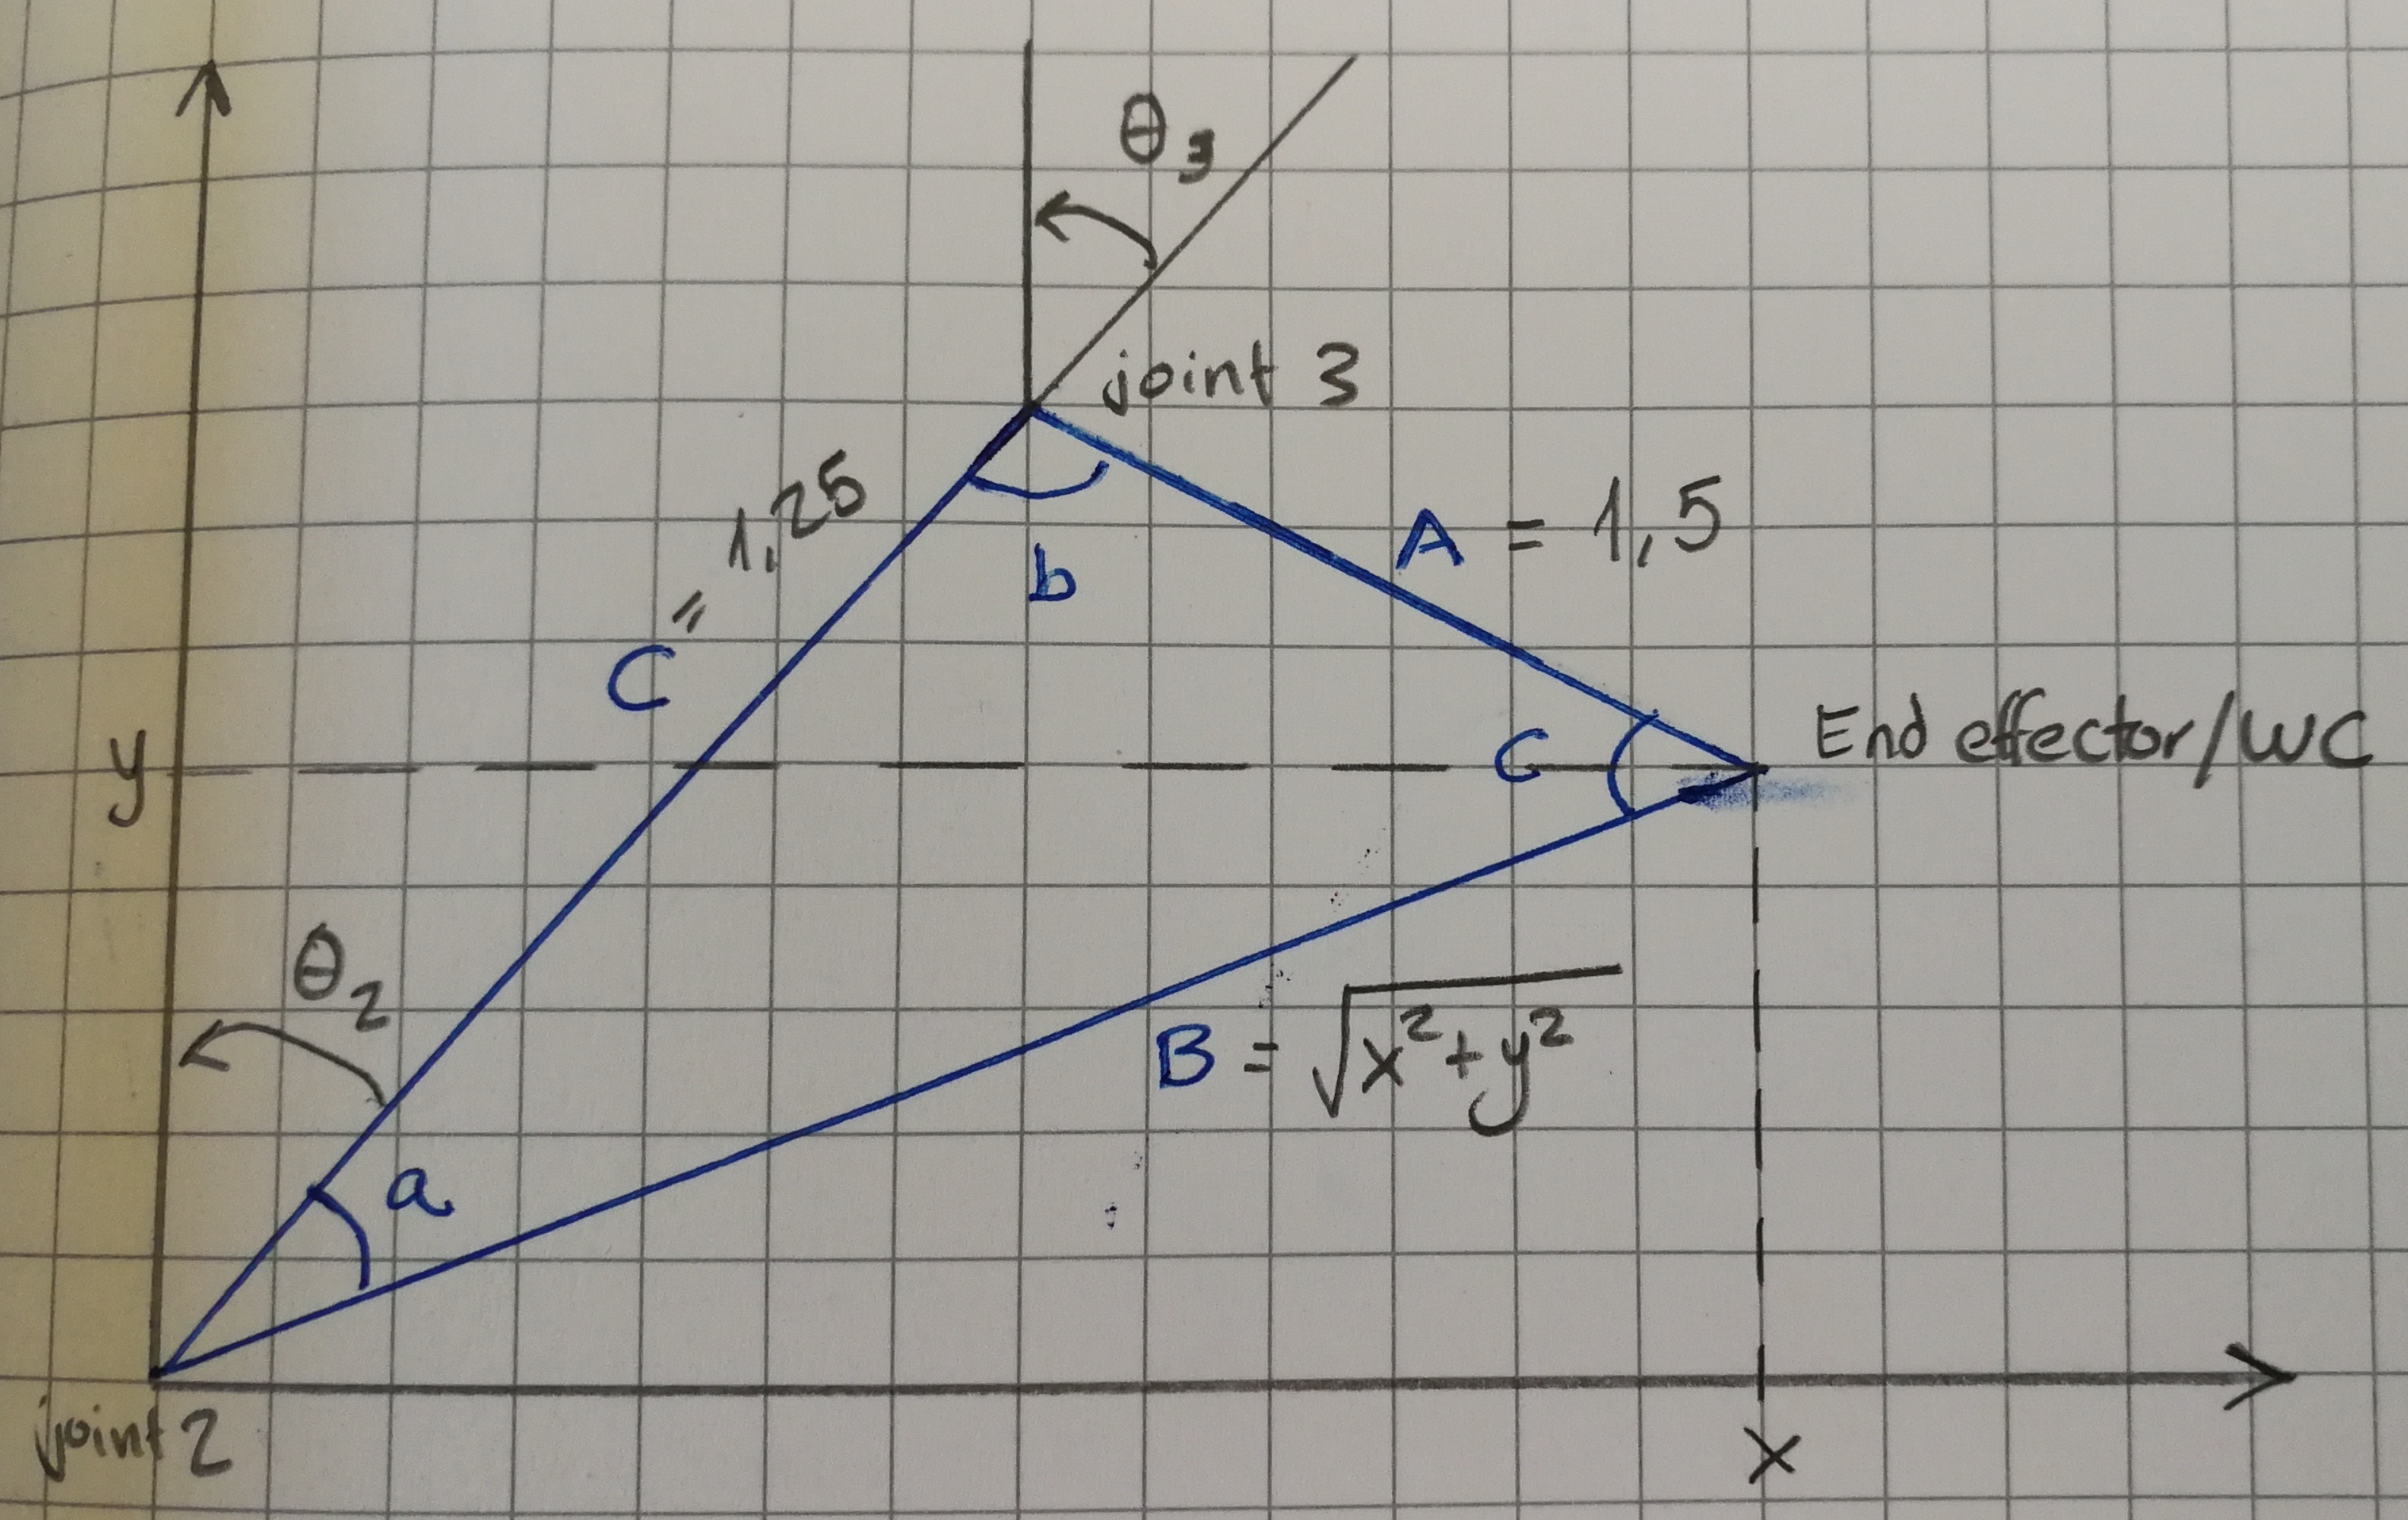 θ₃
joint 3
C = 1,25
A = 1,5
b
y
C
End effector/WC
θ₂
B = √x²+y²
a
joint 2
x